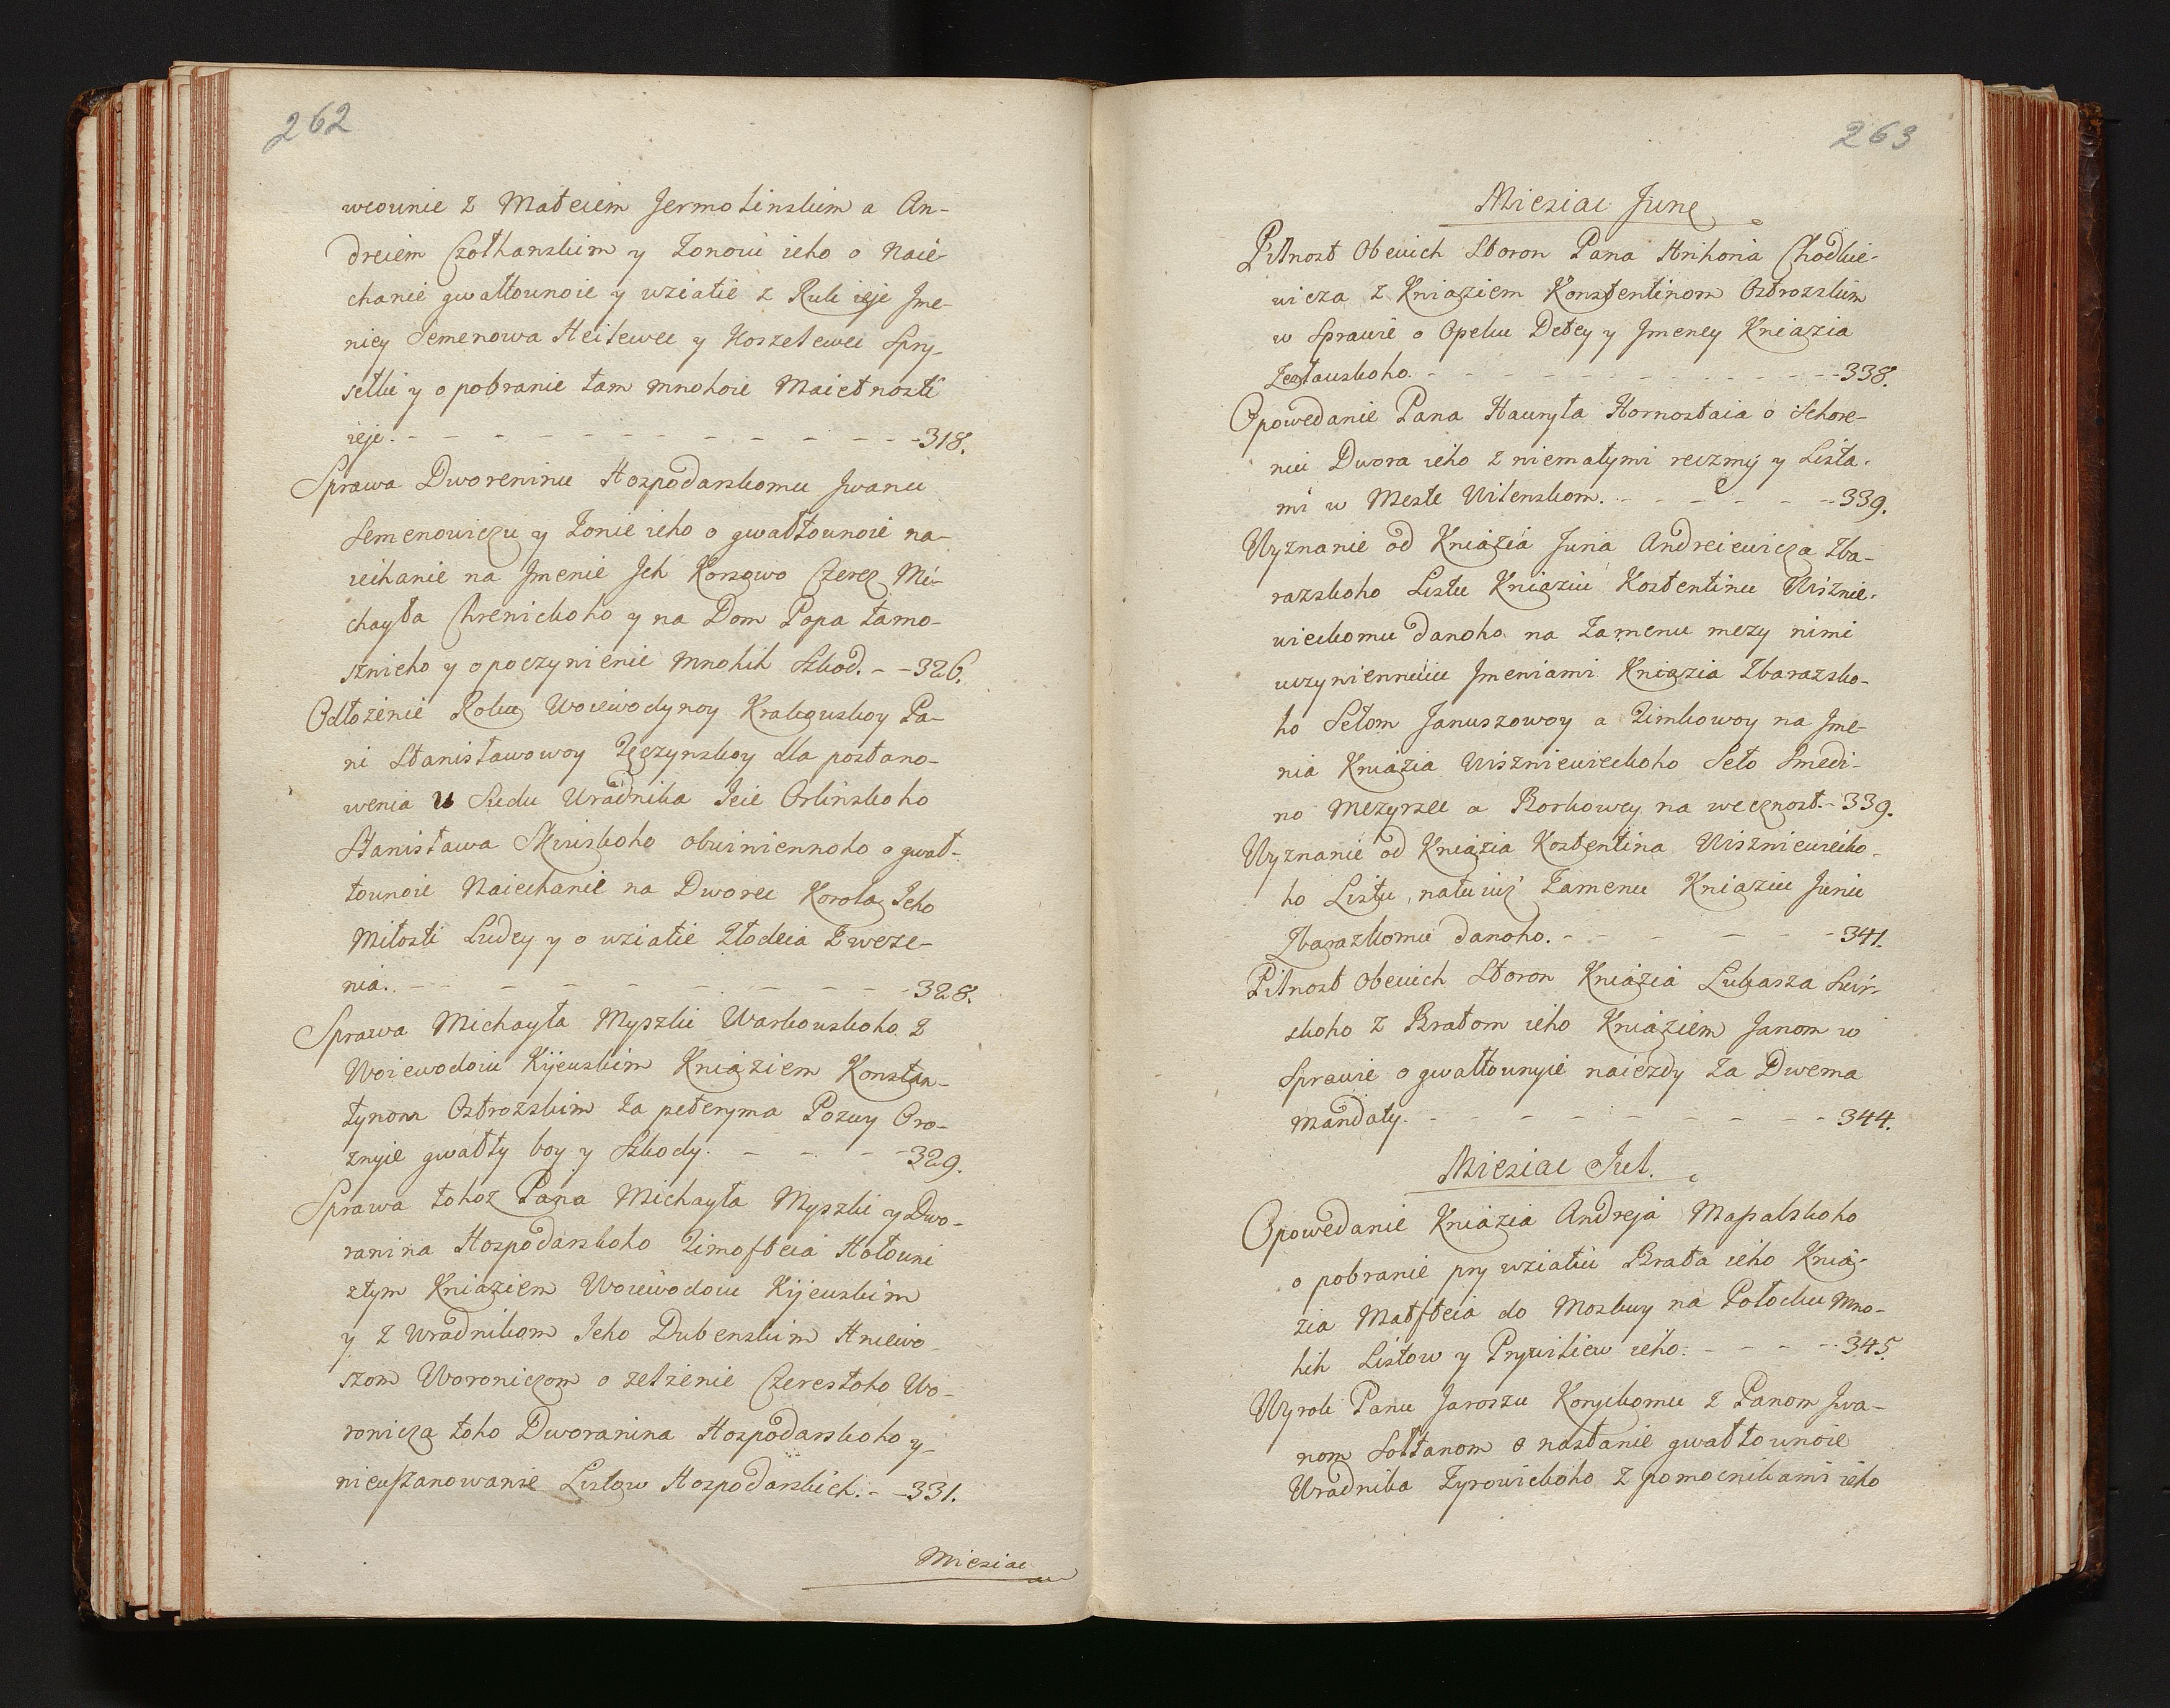 262
wounie z Mateiem Jermolinskim a An-
dreiem Czołhanskim y Zonoiu ieho o Naie-
chanie gwałtounoie y wziatie z Ruk ieje Jme-
niey Semenowa Heilewec y Koszelewec Spry-
selki y o pobranie tam mnohoie Maietnosti
ieje. - - - - - - - - - - - 318.
Sprawa Dworeninu Hospodarskomu Jwanu
Semenowiczu y Zonie ieho o gwałtounoie na-
iechanie na Jmenie Jch Korsowo Czerez Mi-
chayła Chrenickoho y na Dom Popa tamo-
sznieho y o poczynienie mnohih Szkod. - - 326.
Odłozenie Roku Woiewodynoy Krakouskoy Pa-
ni Stanisławowoy Tęczynskoy dla postano-
wenia u Sudu Uradnika Jeie Orlinskoho
Stanisława Skuiskoho obwiniennoho o gwał-
tounoie Naiechanie na Dworec Korola Jeho
Miłosti Ludey y o wziatie Złodeia z weze-
nia. - - - - - - - - - - 328.
Sprawa Michayła Myszki Warkouskoho z
Woiewodoiu Kijeuskim Kniaziem Konstan-
tynom Ostrozskim za peteryma Pozwy Oro-
znyie gwałty boy y Szkody. - - - - 329.
Sprawa tohoz Pana Michayła Myszki y Dwo-
ranina Hospodarskoho Timofteia Hołouni
z tym Kniaziem Woiewodoiu Kijeuskim
y z Uradnikom Jeho Dubenskim Hniewo-
szom Woroniczom o zelzenie Czerestoho Wo-
ronicza toho Dworanina Hospodarskoho y
nieuszanowanie Listow Hospodarskich. - - 331.
Miesiac
263
Miesiac June
Pilnost Obeuich Storon Pana Hrihoria Chodkie-
wicza z Kniaziem Konstentinom Ostrozskim
w Sprawie o Opeku Detey y Jmeney Kniazia
Zesławskoho. - - - - - - - - - - 338.
Opowedanie Pana Hawryła Hornostaia o Schore-
nii Dwora ieho z niemałymi reczmi y Lista-
mi w Meste Wilenskom. - - - - - 339.
Wyznanie od Kniazia Juria Andreiewicza Zba-
razskoho Listu Kniaziu Kostentinu Wisznie-
wieckomu danoho na zamenu mezy nimi
uczyniennuiu Jmeniami Kniazia Zbarazsko-
ho Sełom Januszowoy a Zimkowoy na Jme-
nia Kniazia Wiszniewieckoho Seło Smedi-
no Mezyrzec a Borkowcy na wecznost. - 339.
Wyznanie od Kniazia Kostentina Wiszniewiecko-
ho Listu, natuiuż Zamenu Kniaziu Juriu
Zbarazkomu danoho. - - - - - - 341.
Pilnost Obeuich Storon Kniazia Lukasza Swir-
skoho z Bratom ieho Kniaziem Janom w
Sprawie o gwałtounyie naiezdy za Dwema
Mandaty. - - - - - - - - - 344.
Miesiac Jul.
Opowedanie Kniazia Andreja Masalskoho
o pobranie pry wziatiu Brata ieho Knia-
zia Matfteia do Moskwy na Połocku Mno-
hih Listow y Prywiliew ieho. - - - - 345.
Wyrok Panu Jaroszu Koryckomu z Panom Jwa-
nom Sołtanom o nasłanie gwałtounoie
Uradnika Zyrowickoho z pomocnikami ieho